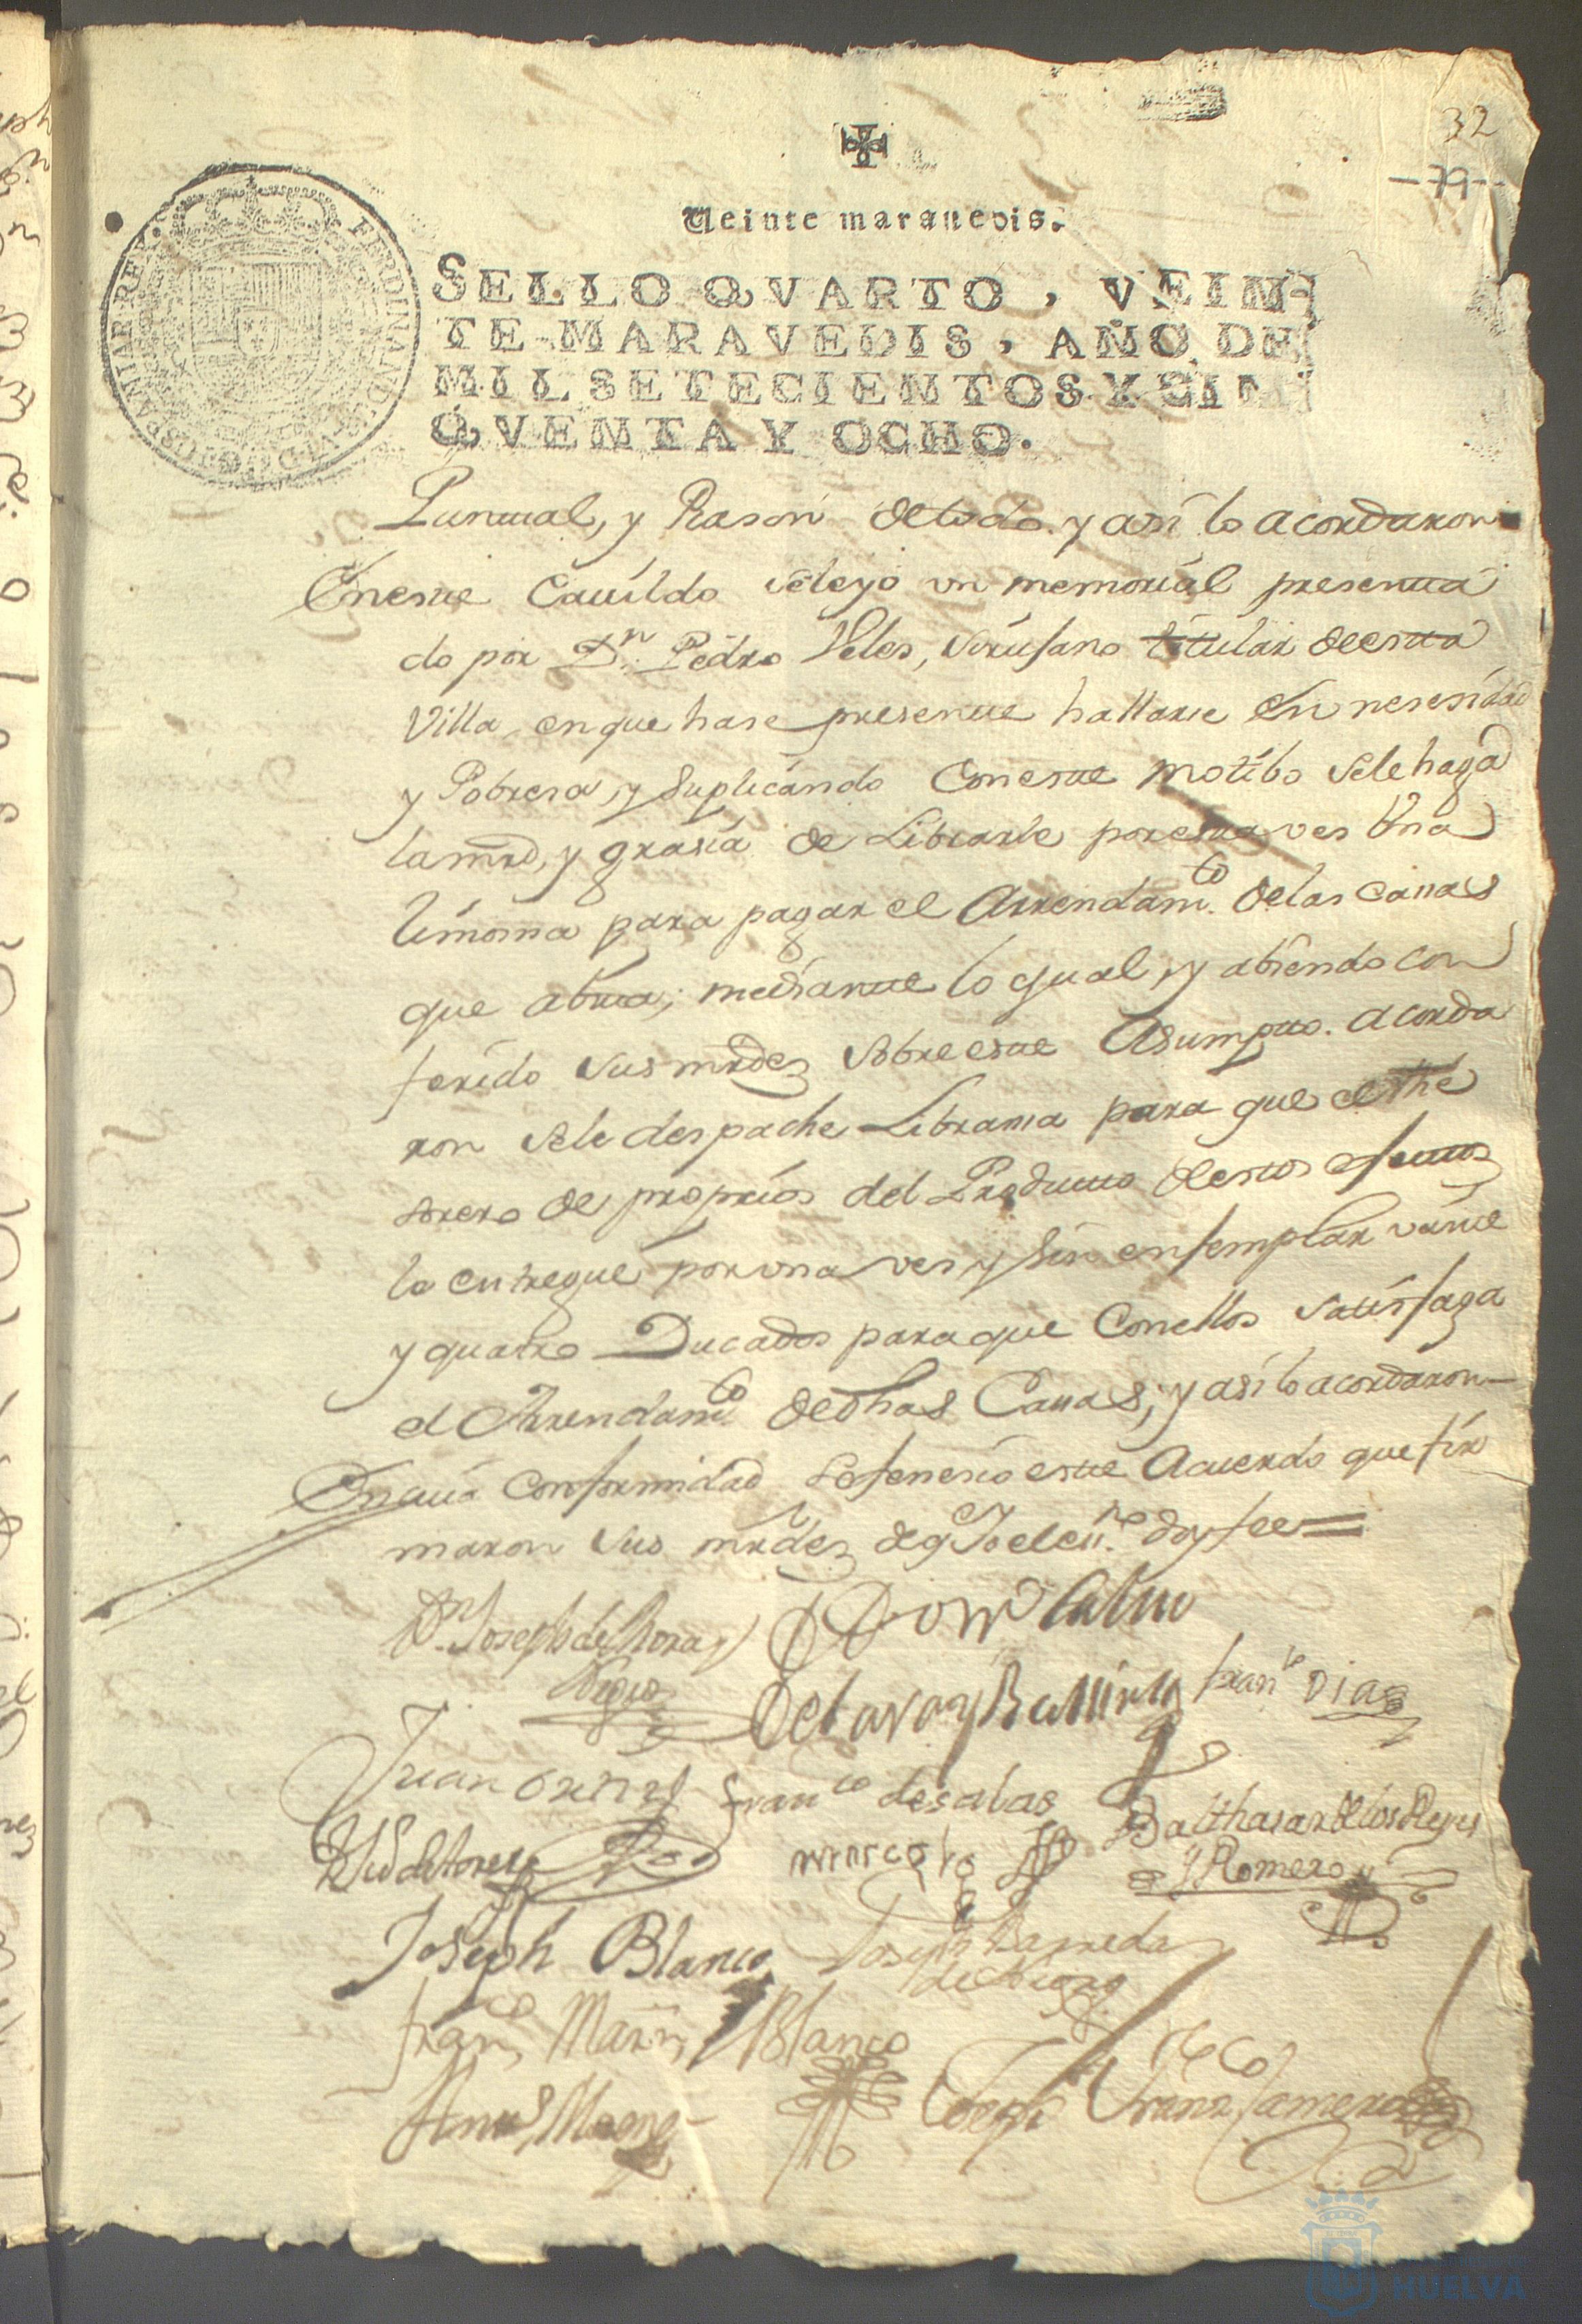 32
-79-
Veinte maravedis.
SELLO QVARTO, VEIN-
TE MARAVEDIS, AÑO DE
MIL SETECIENTOS Y CIN
QVENTA Y OCHO.
HISPANIAR REX
FERDINAND
Puntual, y Rason de todo. y asi lo acordaron
En este Cavildo se leyo un memorial presenta
do por Dn. Pedro Veles, Sirujano titular de esta
Villa, en que hase presente hallarse en nesesidad
y Pobresa, y suplicando con este motibo se le haga
la mrd, y grasia de Librarle por esta ves una
limosna para pagar el Arrendamto. de las casas
que abita; mediante lo qual, y abiendo con
ferido sus mrdes sobre este Asumpto. acorda
ron se le despache Libransa para que el the
sorero de proprios del Producto de estos efectos
le entregue por una ves, y sin enjemplar veinte
y quatro Ducados para que con ellos satisfaga
el Arrendamto de dhas Casas; y asi lo acordaron
En cuia conformidad se fenesio este Acuerdo que fir
maron sus mrdes de q Io el essno. doy fee =
Dn. Joseph de Mora y
Negro
Octavo y Ramires
Franco Dias
Juan
Franco de salas
Balthasar de los Reyes
y Romero
Joseph Blanco
Joseph Barreda
Franco Marn Blanco
Joseph
HUELVA